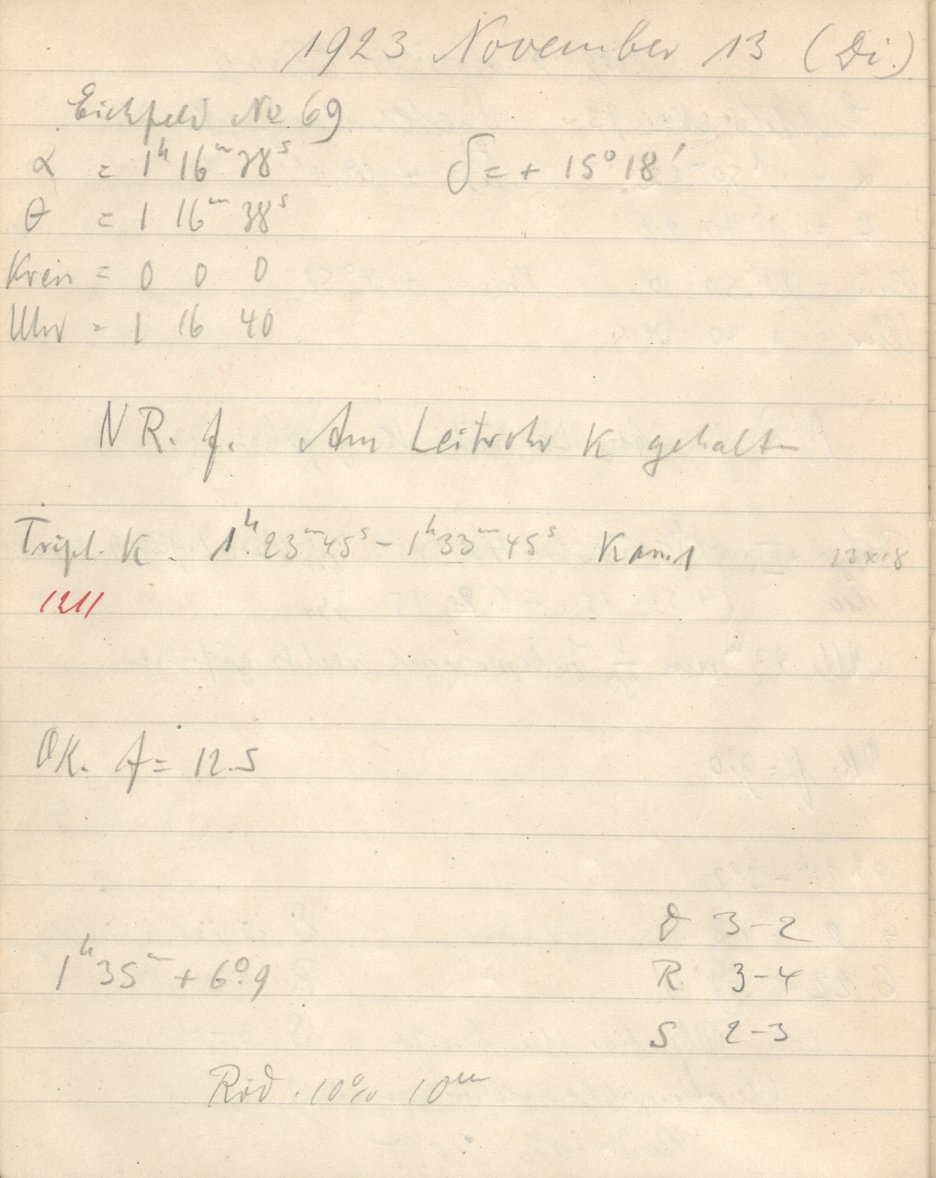 1923 November 13 (Di.)
Eichfeld No 69
α = 1h 16m 38s δ = + 15° 18'
θ = 1 16m 38s
Krein = 0 0 0
Uhr = 1 16 40
NR. f. Am Leitrohr K gehalten
Tripl. K. 1h 23m 45s - 1h 33m 45s Kam. 1 13x18
1211
OK. f = 12.5
D 3-2
1h 35m + 6°.9 R 3-4
S 2-3
Rod. 10% 10m